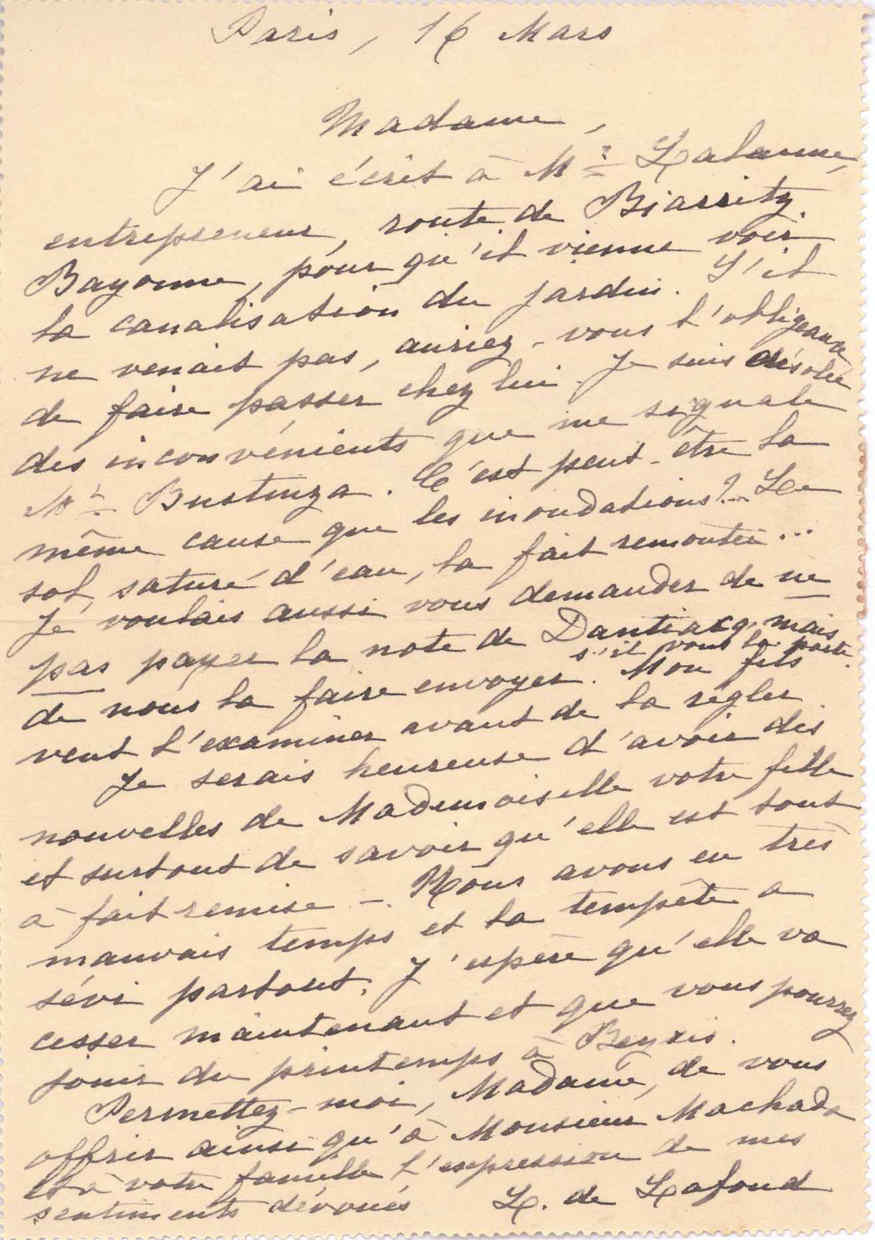 Paris, 16 Mars
Madame,
J'ai écrit à Mr Lalanne,
entrepreneur, route de Biarritz
Bayonne, pour qu'il vienne voir
la canalisation du jardin. S'il
ne venait pas, auriez-vous l'obligeance
de faire passer chez lui. Je suis désolée
des inconvénients que me signale
Mr Bustinza. C'est peut-être la
même cause que les inondations?.. Le
sol saturé d'eau, la fait remonter...
Je voulais aussi vous demander de ne
pas payer la note de Dantiacq, mais
de nous la faire envoyer s'il vous la porte. Mon fils
veut l'examiner avant de la régler
Je serais heureuse d'avoir des
nouvelles de Mademoiselle votre fille
et surtout de savoir qu'elle est tout
à fait remise -. Nous avons eu très
mauvais temps et la tempête a
sévi partout. J'espère qu'elle va
cesser maintenant et que vous pourrez
jouir du printemps à Beyris.
Permettez-moi, Madame, de vous
offrir ainsi qu'à Monsieur Machado
et à votre famille l'expression de mes
sentiments dévoués L. de Lafond